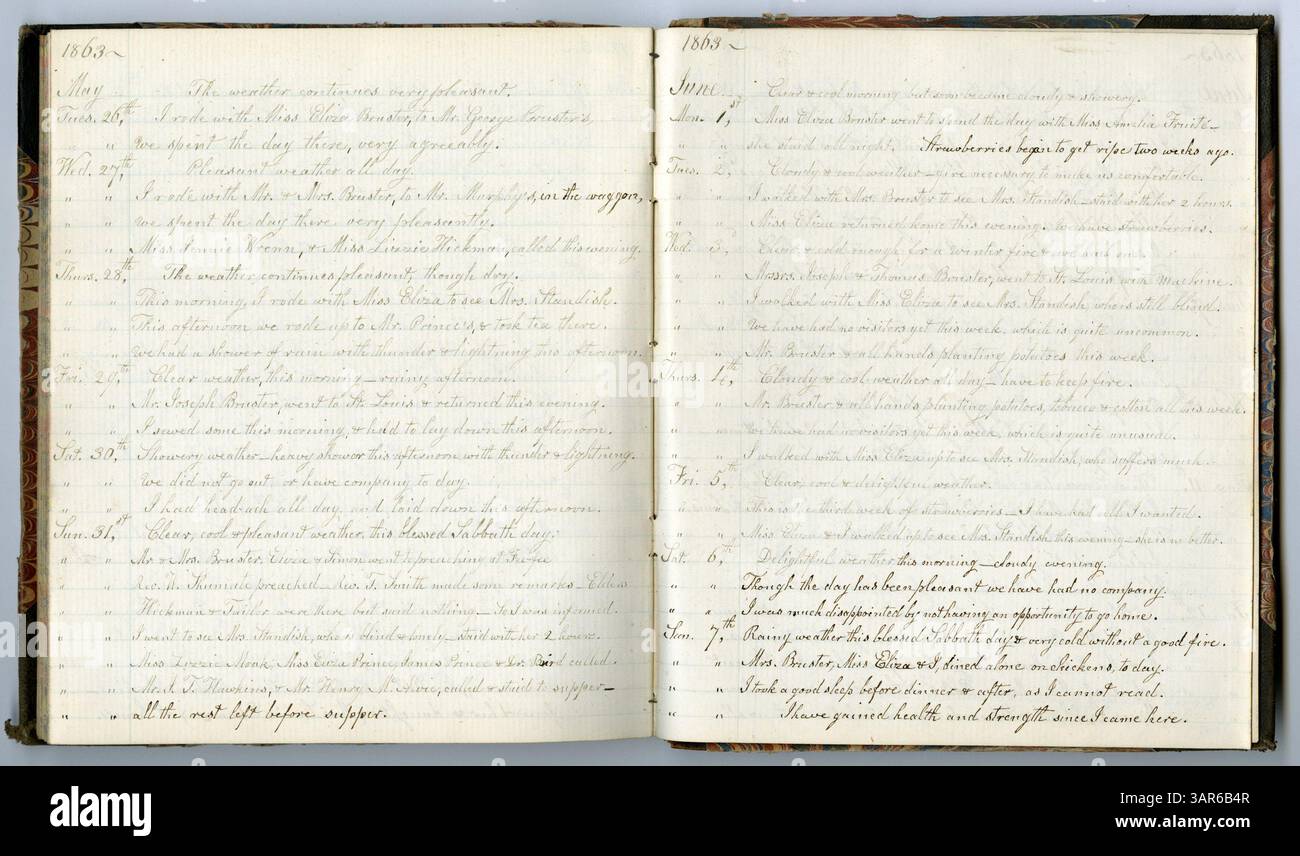 1863
May The weather continues very pleasant.
Tues. 26,th I rode with Miss Eliza Bruster, to Mr. George Bruster's,
" " we spent the day there, very agreeably.
Wed. 27,th Pleasant weather all day.
" " I rode with Mr. & Mrs. Bruster, to Mr. Murphy's, in the waggon,
" " we spent the day there very pleasantly.
" " Miss Jennie Wrenn, & Miss Lizzie Hickman, called this evening.
Thurs. 28,th The weather continues pleasant, though dry.
" " This morning, I rode with Miss Eliza to see Mrs. Standish.
" " This afternoon we rode up to Mr. Prince's, & took tea there.
" " We had a shower of rain with thunder & lightning this afternoon.
Fri. 29,th Clear weather, this morning – rainy afternoon.
" " Mr. Joseph Bruster, went to St. Louis & returned this evening.
" " I sewed some this morning, & had to lay down this afternoon.
Sat. 30,th Showery weather – heavy shower this afternoon with thunder & lightning.
" " We did not go out or have company to day.
" " I had headach all day, and laid down this afternoon.
Sun. 31,st Clear, cool & pleasant weather, this blessed Sabbath day.
" Mr & Mrs. Bruster, Eliza & Simon went to preaching at Feefee
" Rev. W. preached – Rev. T. Smith made some remarks – Elders
" Hickman & Taylor were there but said nothing – So I was informed.
" " I went to see Mrs. Standish, who is blind & lonely – staid with her 2 hours.
" " Miss Lizzie Moak, Miss Eliza Prince, James Prince & Dr. Bird called.
" " Mr. T. Hawkins, & Mr. Henry called & staid to supper –
" " all the rest left before supper.
1863
June Clear & cool morning but soon became cloudy & showery.
Mon. 1,st Miss Eliza Bruster went to spend the day with Miss Amelia
" " she staid all night. Strawberries began to get ripe two weeks ago.
Tues. 2, Cloudy & cool weather – fire necessary to make us comfortable.
" " I walked with Mrs. Bruster to see Mrs. Standish – staid with her 2 hours.
" " Miss Eliza returned home this evening – we have strawberries.
Wed. 3, Clear & cold enough for a winter fire & we have one.
" " Messrs. Joseph & Thomas Bruster, went to St. Louis with Machine.
" " I walked with Miss Eliza to see Mrs. Standish, who is still blind.
" " We have had no visitors yet this week, which is quite uncommon.
" " Mr. Bruster & all hands planting potatoes this week.
Thurs. 4,th Cloudy & cool weather all day – have to keep fire.
" " Mr. Bruster & all hands, planting potatoes, tobacco & cotton all this week.
" " We have had no visitors yet this week, which is quite unusual.
" " I walked with Miss Eliza up to see Mrs. Standish, who suffers much.
Fri. 5,th Clear, cool & delightful weather.
" " This is the third week of strawberries – I have had all I wanted.
" " Miss Eliza & I walked up to see Mrs. Standish, this evening – she is no better.
Sat. 6,th Delightful weather this morning – cloudy evening.
" " Though the day has been pleasant we have had no company.
" " I was much disappointed by not having an opportunity to go home.
Sun. 7,th Rainy weather this blessed Sabbath day & very cold without a good fire.
" " Mrs. Bruster, Miss Eliza & I, dined alone on chickens, to day.
" " I took a good sleep before dinner & after, as I cannot read.
" " I have gained health and strength since I came here.
alamy
Image ID: 3AR6B4R
www.alamy.com